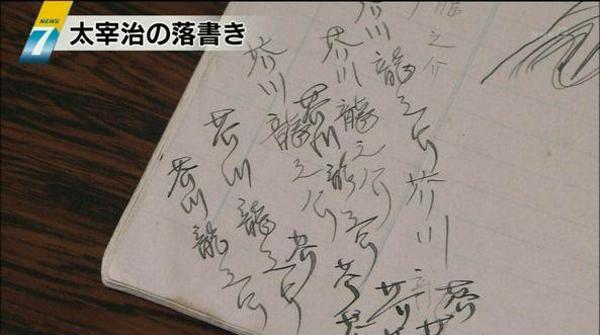 NEWS
7
太宰治の落書き
龍之介
芥川龍之介
芥川
芥川龍之介
芥川龍之介
芥川龍之介
芥川龍之介
芥川龍之介
芥川